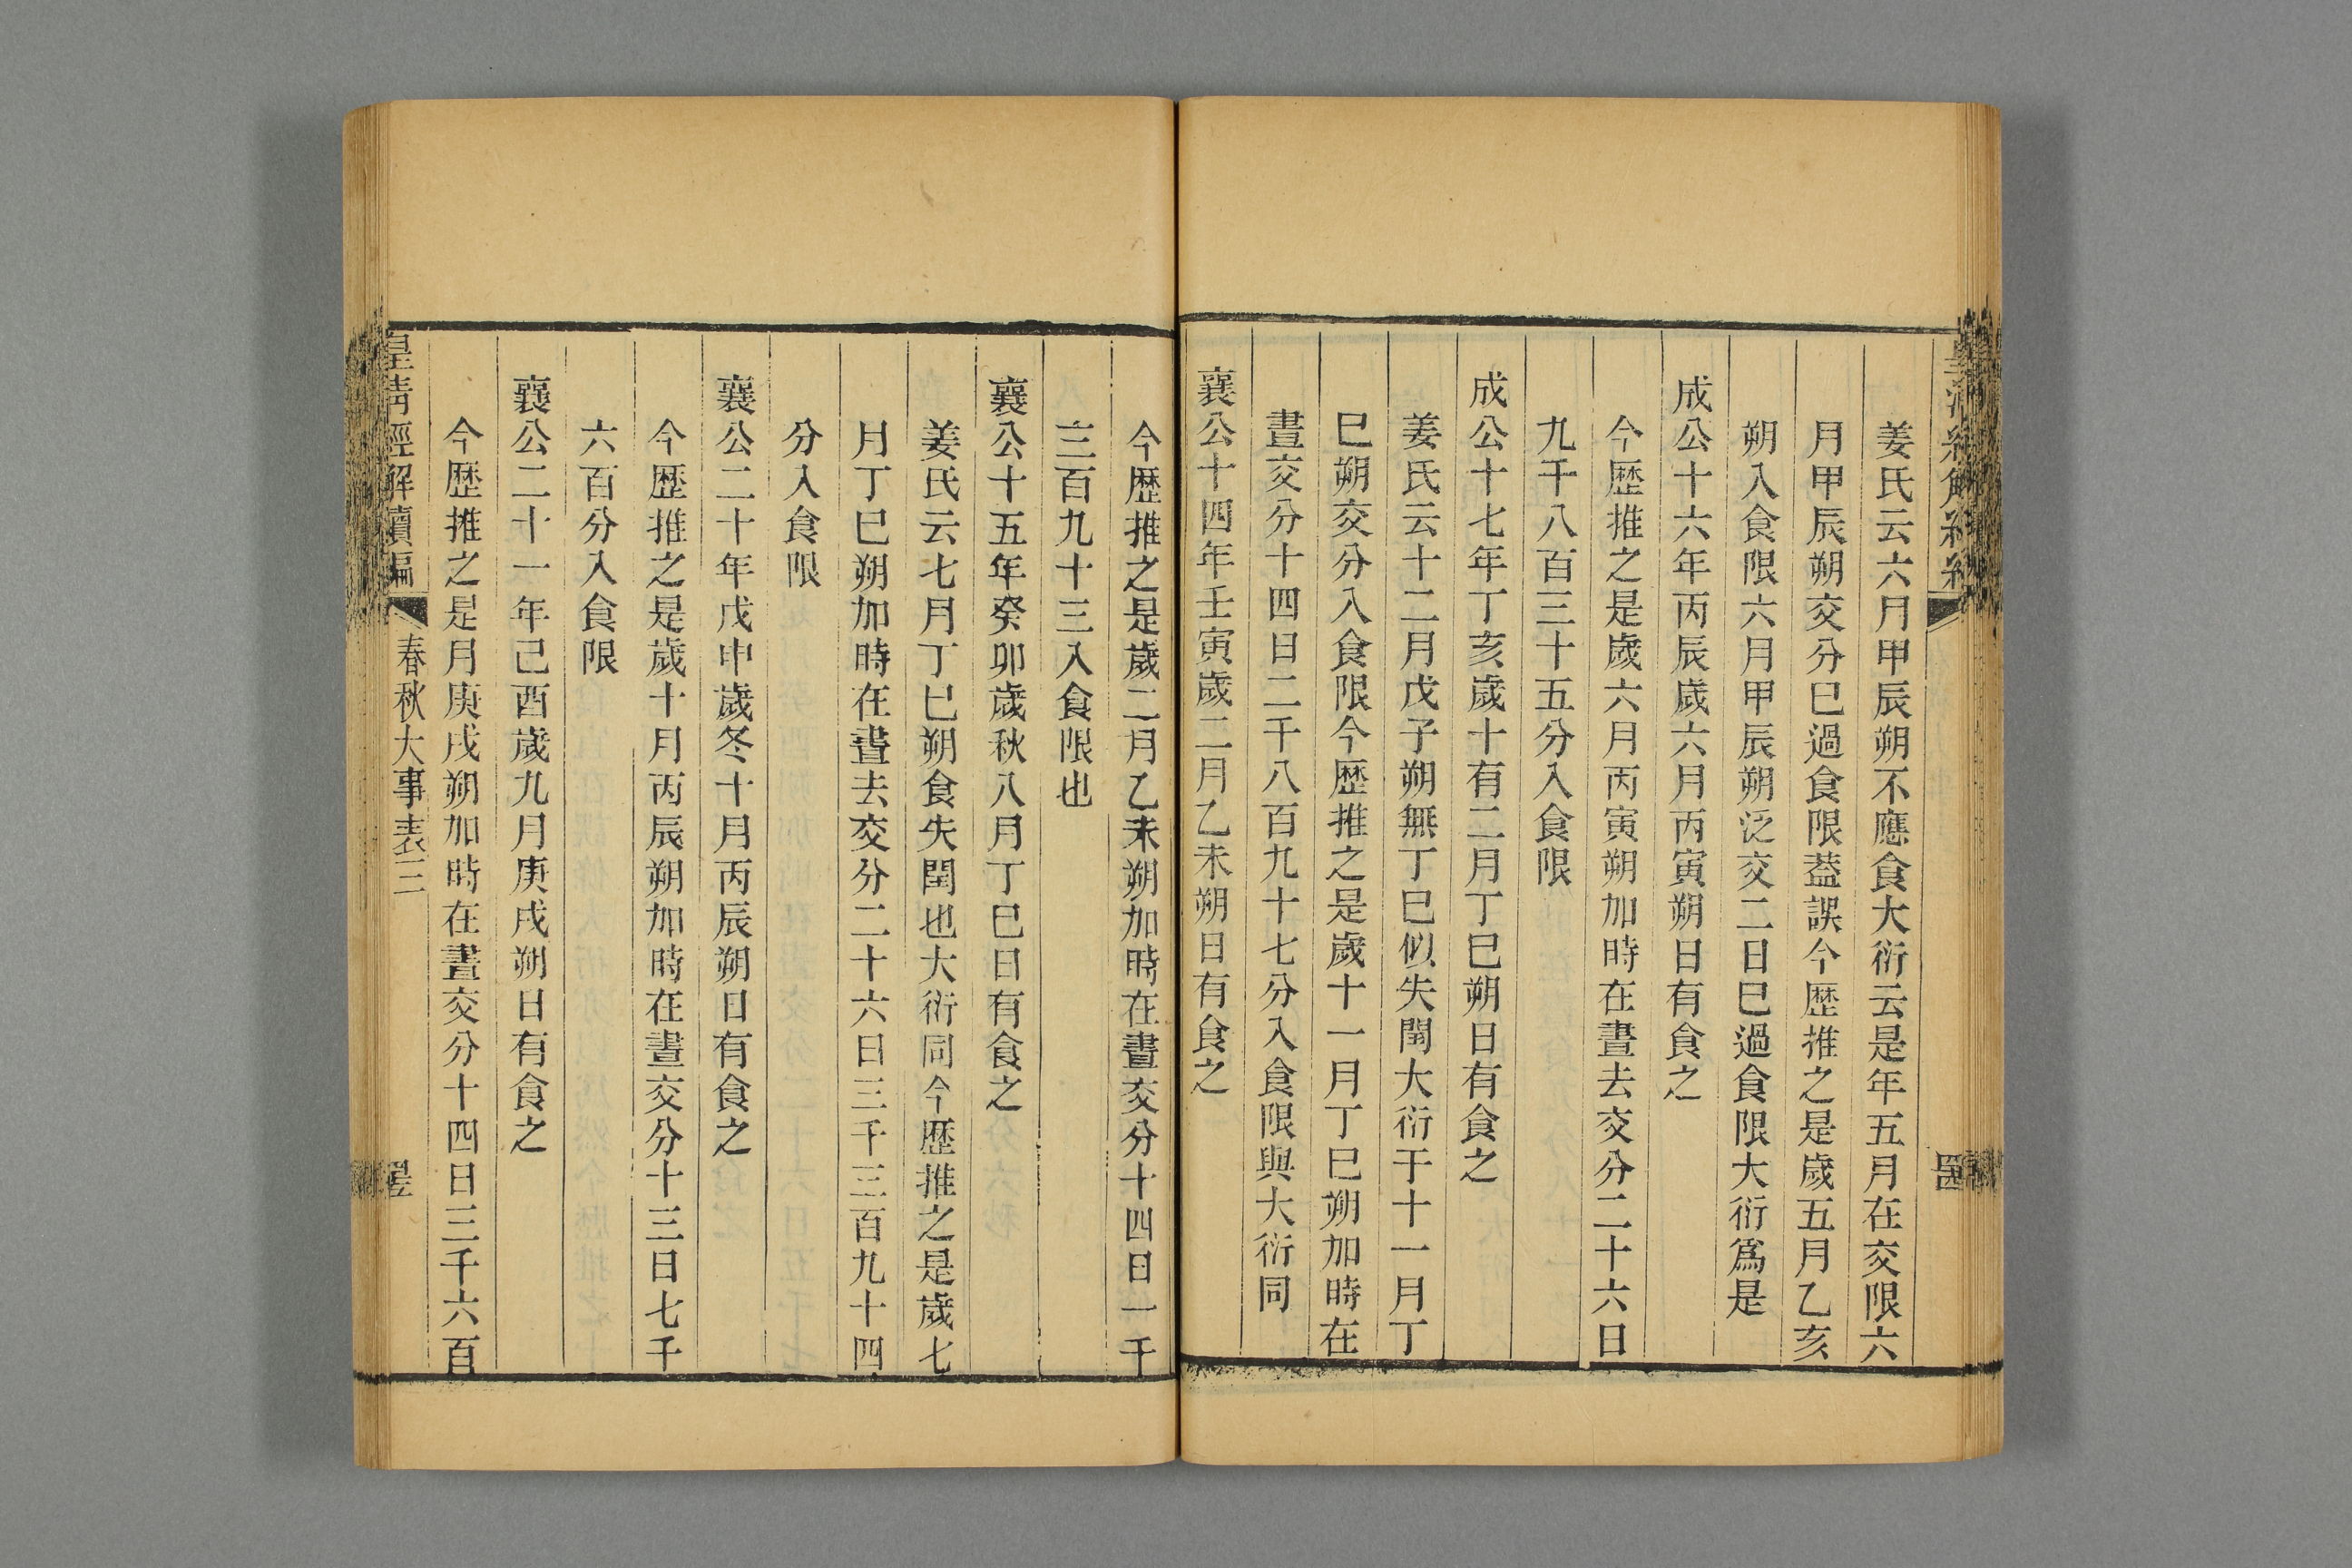 姜氏云六月甲辰朔不應食大衍云是年五月在交限六
月甲辰朔交分巳過食限葢誤今歴推之是歲五月乙亥
朔入食限六月甲辰朔泛交二日巳過食限大衍爲是
成公十六年丙辰歲六月丙寅朔日有食之
今歴推之是歲六月丙寅朔加時在晝去交分二十六日
九千八百三十五分入食限
成公十七年丁亥歲十有二月丁巳朔日有食之
姜氏云十二月戊子朔無丁巳似失閏大衍于十一月丁
巳朔交分入食限今歴推之是歲十一月丁巳朔加時在
晝交分十四日二千八百九十七分入食限與大衍同
襄公十四年壬寅歲二月乙未朔日有食之
今歴推之是歲二月乙未朔加時在晝交分十四日一千
三百九十三入食限也
襄公十五年癸卯歲秋八月丁巳日有食之
姜氏云七月丁巳朔食失閏也大衍同今歴推之是歲七
月丁巳朔加時在晝去交分二十六日三千三百九十四
分入食限
襄公二十年戊申歲冬十月丙辰朔日有食之
今歴推之是歲十月丙辰朔加時在晝交分十三日七千
六百分入食限
襄公二十一年己酉歲九月庚戌朔日有食之
今歴推之是月庚戌朔加時在晝交分十四日三千六百
皇清經解續編 春秋大事表三